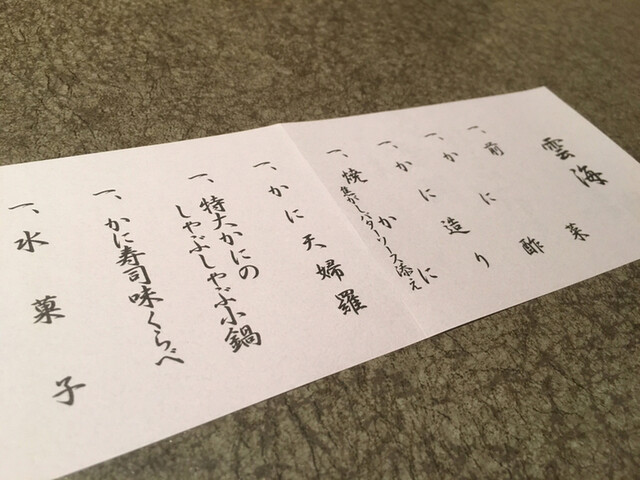 雲海
一、前菜
一、かに酢
一、かに造り
一、焼かに
焦がしバターソース添え
一、かに天婦羅
一、特大かにの
しゃぶしゃぶ小鍋
一、かに寿司味くらべ
一、水菓子